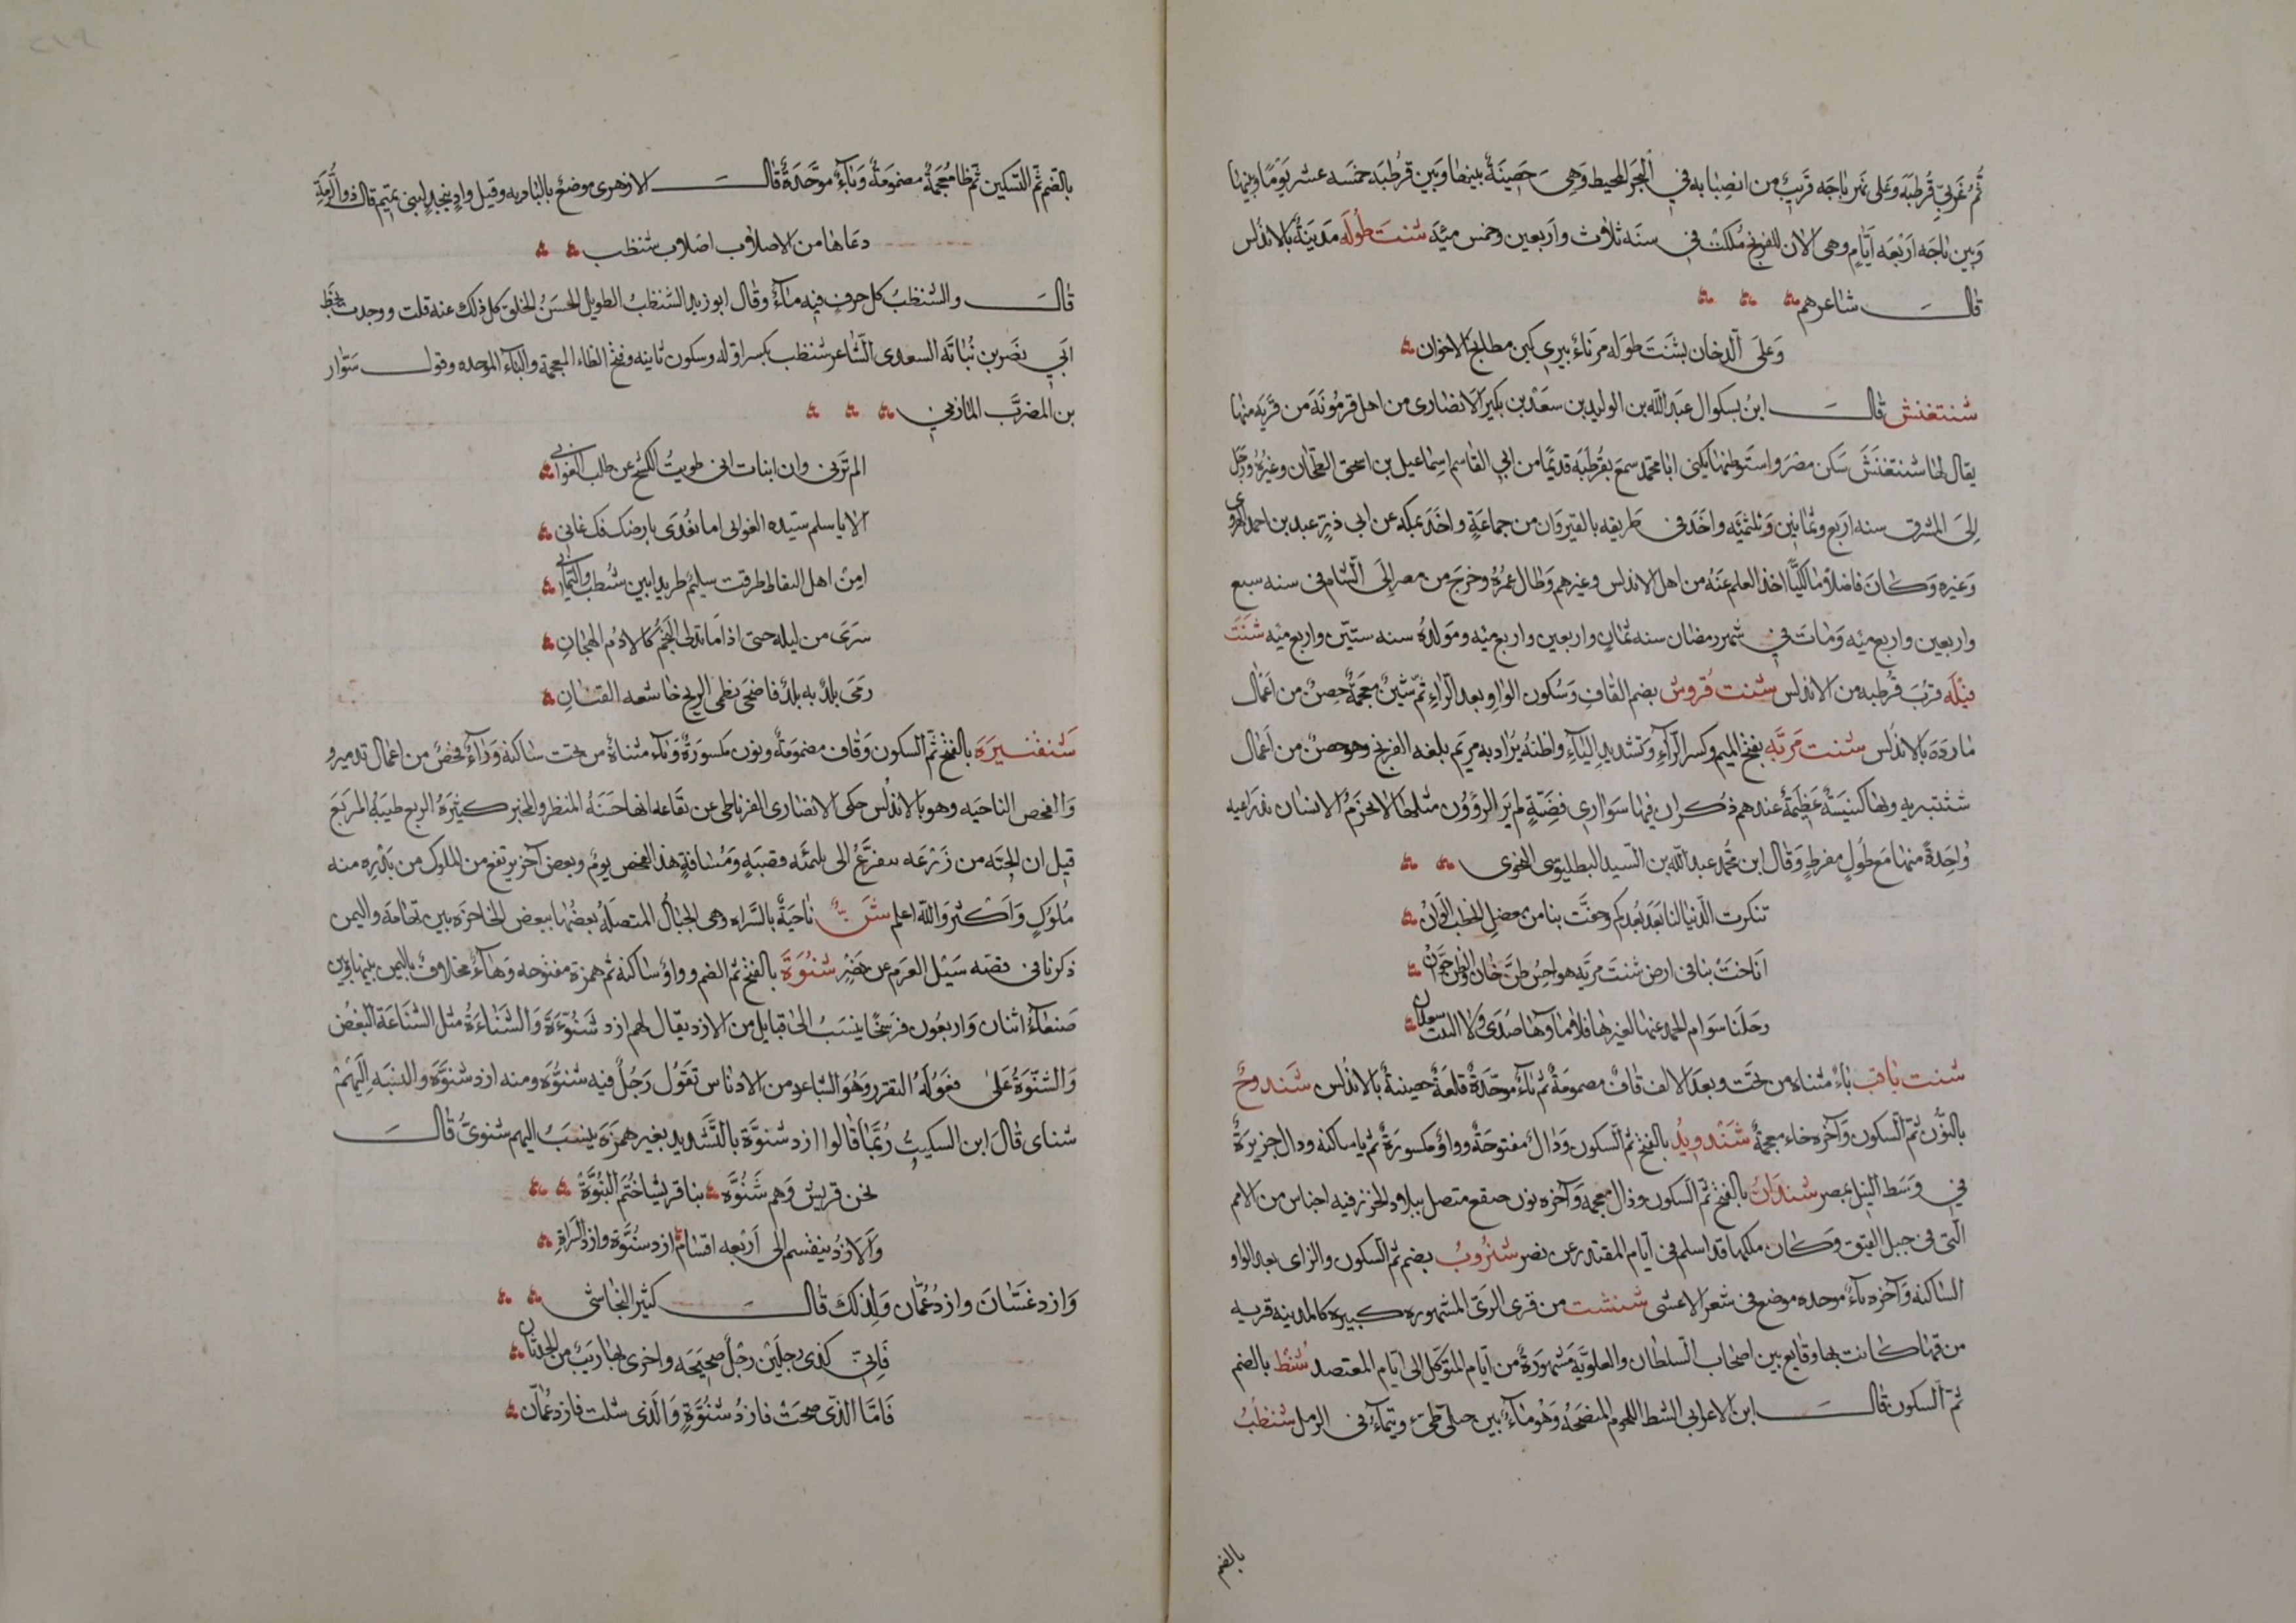 ثم غربي قرطبه وعلى نهر باجه قريب من انصبابه في البحر المحيط وهي حصينة بينها وبين قرطبه خمسه عشر يوما وبينها
وبين باجه اربعه ايام وهي الان للفرنج ملكت في سنه ثلاث واربعين وخمس مئة شنت طوله مدينة بالاندلس
قال شاعرهم
وعلى الدخان بشنت طوله مرناء يبري كمين مطابخ الاخوان
شنتغنش قال ابن بسكوال عبد الله بن الوليد بن سعد بن بكير الانصاري من اهل قرمونة من قرية منها
يقال لها شنتغنش سكن مصر واستوطنها يكنى ابا محمد سمع بقرطبه قديما من ابي القاسم اسماعيل بن اسحق الطحان وغيره ورحل
الى المشرق سنه اربع وثمانين وثلثمئه واخذ في طريقه بالقيروان من جماعة واخذ بمكه عن ابي ذر عبد بن احمد الهروي
وغيره وكان فاضلا مالكيا اخذ العلم عنه من اهل الاندلس وغيرهم وطال عمره وخرج من مصر الى الشام في سنه سبع
واربعين واربع مئه ومات في شهر رمضان سنه ثمان واربعين واربع مئه ومولده سنه ستين واربع مئه شنت
فيله قرب قرطبه من الاندلس شنت قروش بضم القاف وسكون الواو بعد الراء ثم شين معجمة حصن من اعمال
مارده بالاندلس شنت مريه بفتح الميم وكسر الراء وتشديد الياء واظنه يراد به مريم بلغه الفرنج وهو حصن من اعمال
شنتبريه وبها كنيسة عظيمة عندهم ذكر ان فيها سواري فضة لم ير الرؤون مثلها لا يحزم الانسان بذراعيه
واحدة منها مع طول مفرط وقال ابن محمد عبد الله بن السيد البطليوسي النحوي
تنكرت الدنيا لنا بعد بعدكم وحفت بنا من معضل الخطب الوان
اناخت بنا في ارض شنت مريه هواجس ظن خان والظن خوان
رحلنا سوام الحمد عنها لغيرها فلا ماؤها صدى ولا النبت سعدان
شنت ياقب ياء مثناه من تحت وبعد الالف قاف مضمومة ثم باء موحدة قلعة حصينة بالاندلس شندوخ
بالنون ثم السكون وآخره خاء معجمة شندويد بالفتح ثم السكون ودال مفتوحة وواو مكسورة ثم يا ساكنه ودال جزيرة
في وسط النيل بمصر شندان بالفتح ثم السكون وذال معجمه وآخره نون صقع متصل ببلاد الخزر فيه اجناس من الامم
التي في جبل القبق وكان ملكها قد اسلم في ايام المقتدر عن نصر شنزوب بضم ثم السكون والزاي بعد الواو
الساكنه وآخره باء موحده موضع في شعر الاعشى شنشت من قرى الري المشهوره كبيره كالمدينه قريه
من قها كانت بها وقايع بين اصحاب السلطان والعلوية مشهورة من ايام المتوكل الى ايام المعتصد شنط بالضم
ثم السكون قال ابن الاعرابي الشط اللحوم المنضجه وهو ماء بين جبلي طيء وتيماء في الرمل شنظب
بالضم
بالضم ثم التسكين ثم ظا معجمة مضمومة وباء موحدة قال الازهرى موضع بالباديه وقيل واد بنجد لبني تميم قال ذو الرمة
دعاها من الاصلاب اصلاب شنظب
قال والشنظب كل حرف فيه ماء وقال ابو زيد الشنظب الطويل الحسن الخلق كل ذلك عنه قلت ووجدت بخط
ابي نصر بن نباته السعدى الشاعر شنظب بكسر اوله وسكون ثانيه وفتح الظاء المعجمة والباء الموحده وقول سوار
بن المضرب المازني
الم ترني وان انبات اني طويت الكشح عن طلب الغواني
الا يا سلم سيده الغواني اما تفدى بارضك فك عاني
امن اهل النقا طرقت سليم طريدا بين شنظب والثماني
سرى من ليله حتى اذا ما تدلى النجم كالادم الهجان
رمى بلد به بلد فاضحى بظمى الريح خاشعه القنان
شنقنيره بالفتح ثم السكون وقاف مضمومة ونون مكسورة وياء مثناة من تحت ساكنة وراء فحص من اعمال تدمير و
والفحص الناحيه وهو بالاندلس حكى الانصارى الغرناطي عن بقاعه انها حسنه المنظر والمخبر كثيرة الريع طيبة المربع
قيل ان الحبه من زرعه تتفرع الى ثلثمئه قصبة ومسافة هذا الفحص يوم وبعض آخر يرتفع من الملوك من بذره منه
ملوك واكثر والله اعلم ناحية بالسراه وهي الجبال المتصلة بعضها ببعض الحاجزه بين تهامة واليمن
ذكر نا في قصه سيل العرم عن نصر شنوءة بالفتح ثم الضم وواو ساكنه ثم همزة مفتوحه وهاء مخلاف باليمن بينها وبين
صنعاء اثنان واربعون فرسخا ينسب الى قبايل من الازد يقال لهم ازد شنوءة والشناءة مثل الشناعة البغض
والشنوءة على فعوله التقزز وهو التباعد من الادناس تقول رجل فيه شنوءة ومنه ازد شنوءة والنسبه اليهم
شناي قال ابن السكيت ربما قالوا ازد شنوة بالتشديد بغير همزة ينسب اليهم شنوي قال
نحن قريش وهم شنوه بنا قريشا ختم النبوة
والازد ينقسم الى اربعه اقسام ازد شنوة وازد السراة
وازد غسان وازد عمان ولذلك قال كثير النجاشي
فاني كذى رجلين رجل صحيحه واخرى بها ريب من الحدثان
فاما الذي صحت فازد شنوة والذي شلت فازد عمان